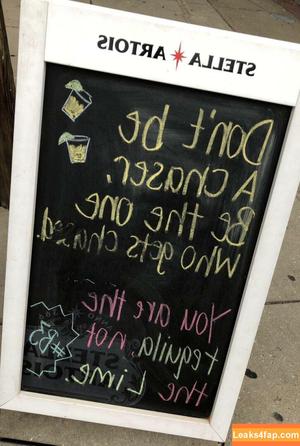 STELLA ARTOIS
Don't be
A chaser,
Be the one
Who gets chased.
You are the
tequila, not
the Lime.
STELLA
ARTOIS
Leaks4fap.com